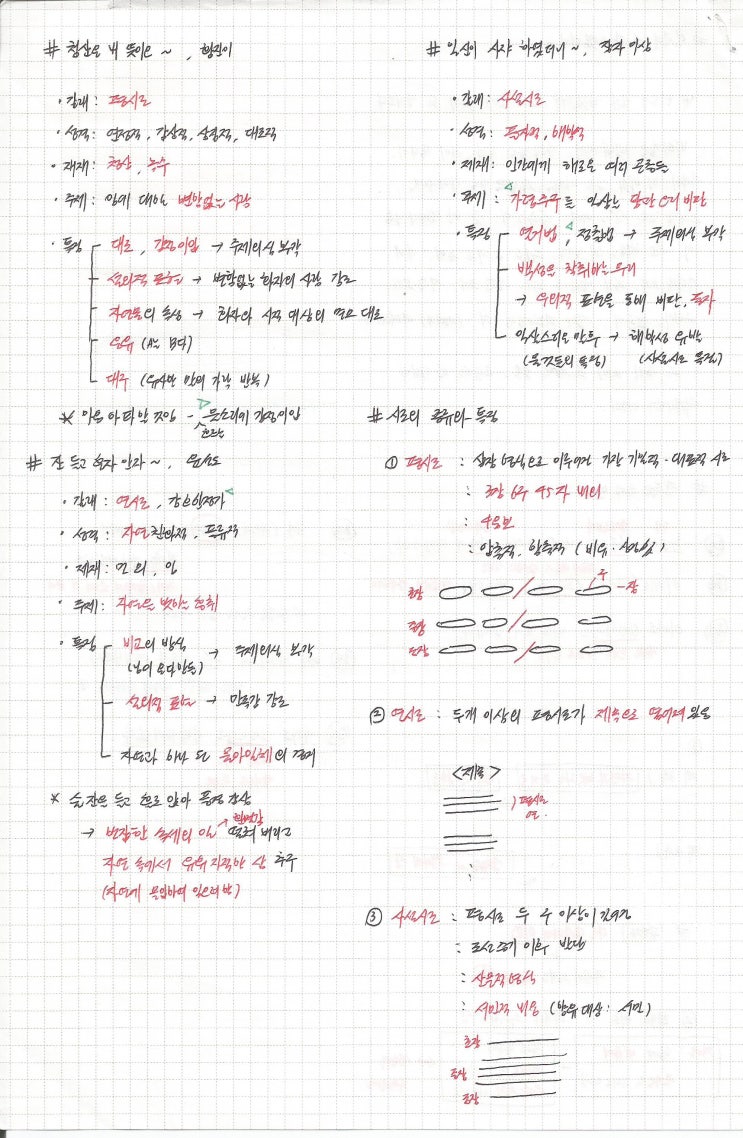 # 청산은 내 뜻이오 ~ , 황진이
· 갈래 : 평시조
· 성격 : 연정적, 감상적, 상징적, 대조적
· 제재 : 청산, 녹수
· 주제 : 임에 대한 변함없는 사랑
· 특징
대조, 감정이입 → 주제의식 부각
설의적 표현 → 변함없는 화자의 사랑 강조
자연물의 속성 → 화자와 시적 대상의 연모 대조
은유 (A는 B다)
대구 (유사한 말의 가락 반복)
* 마음 아파한 것임 - 물소리에 감정이입
흐르는
# 잔 들고 혼자 안자 ~ , 윤선도
· 갈래 : 연시조, 강호한정가
· 성격 : 자연친화적, 풍류적
· 제재 : 먼 뫼, 임
· 주제 : 자연을 벗하는 흥취
· 특징
비교의 방식 → 주제의식 부각
(님이 오다 한들)
설의적 표현 → 만족감 강조
자연과 하나 된 물아일체의 경지
* 술잔을 들고 홀로 앉아 풍경 감상
→ 번잡한 속세의 일 떨쳐 버리고
자연 속에서 유유자적한 삶 추구
(자연에 몰입하여 있으려 함)
# 일신이 사쟈 하엿더니 ~ , 작자 미상
· 갈래 : 사설시조
· 성격 : 풍자적, 해학적
· 제재 : 인간에게 해로운 여러 곤충들
· 주제 : 가렴주구를 일삼는 탐관오리 비판
· 특징
열거법, 점층법 → 주제의식 부각
백성을 착취하는 무리
→ 우의적 표현을 통해 비판, 풍자
일상스러운 말투 → 해학성 유발
(물것들의 특징) (사설시조 특징)
# 시조의 종류와 특징
① 평시조 : 삼장 형식으로 이루어진 가장 기본적·대표적 시조
: 3장 6구 45자 내외
: 4음보
: 압축적, 함축적 (비유·상징)
구
초장 - 장
중장
종장
② 연시조 : 두개 이상의 평시조가 제목으로 엮어져 있음
<제목>
) 평시조
연.
③ 사설시조 : 평시조 두 구 이상이 길어짐
: 조선 후기 이후 발달
: 산문적 형식
: 서민적 내용 (향유 대상 : 서민)
초장
중장
종장